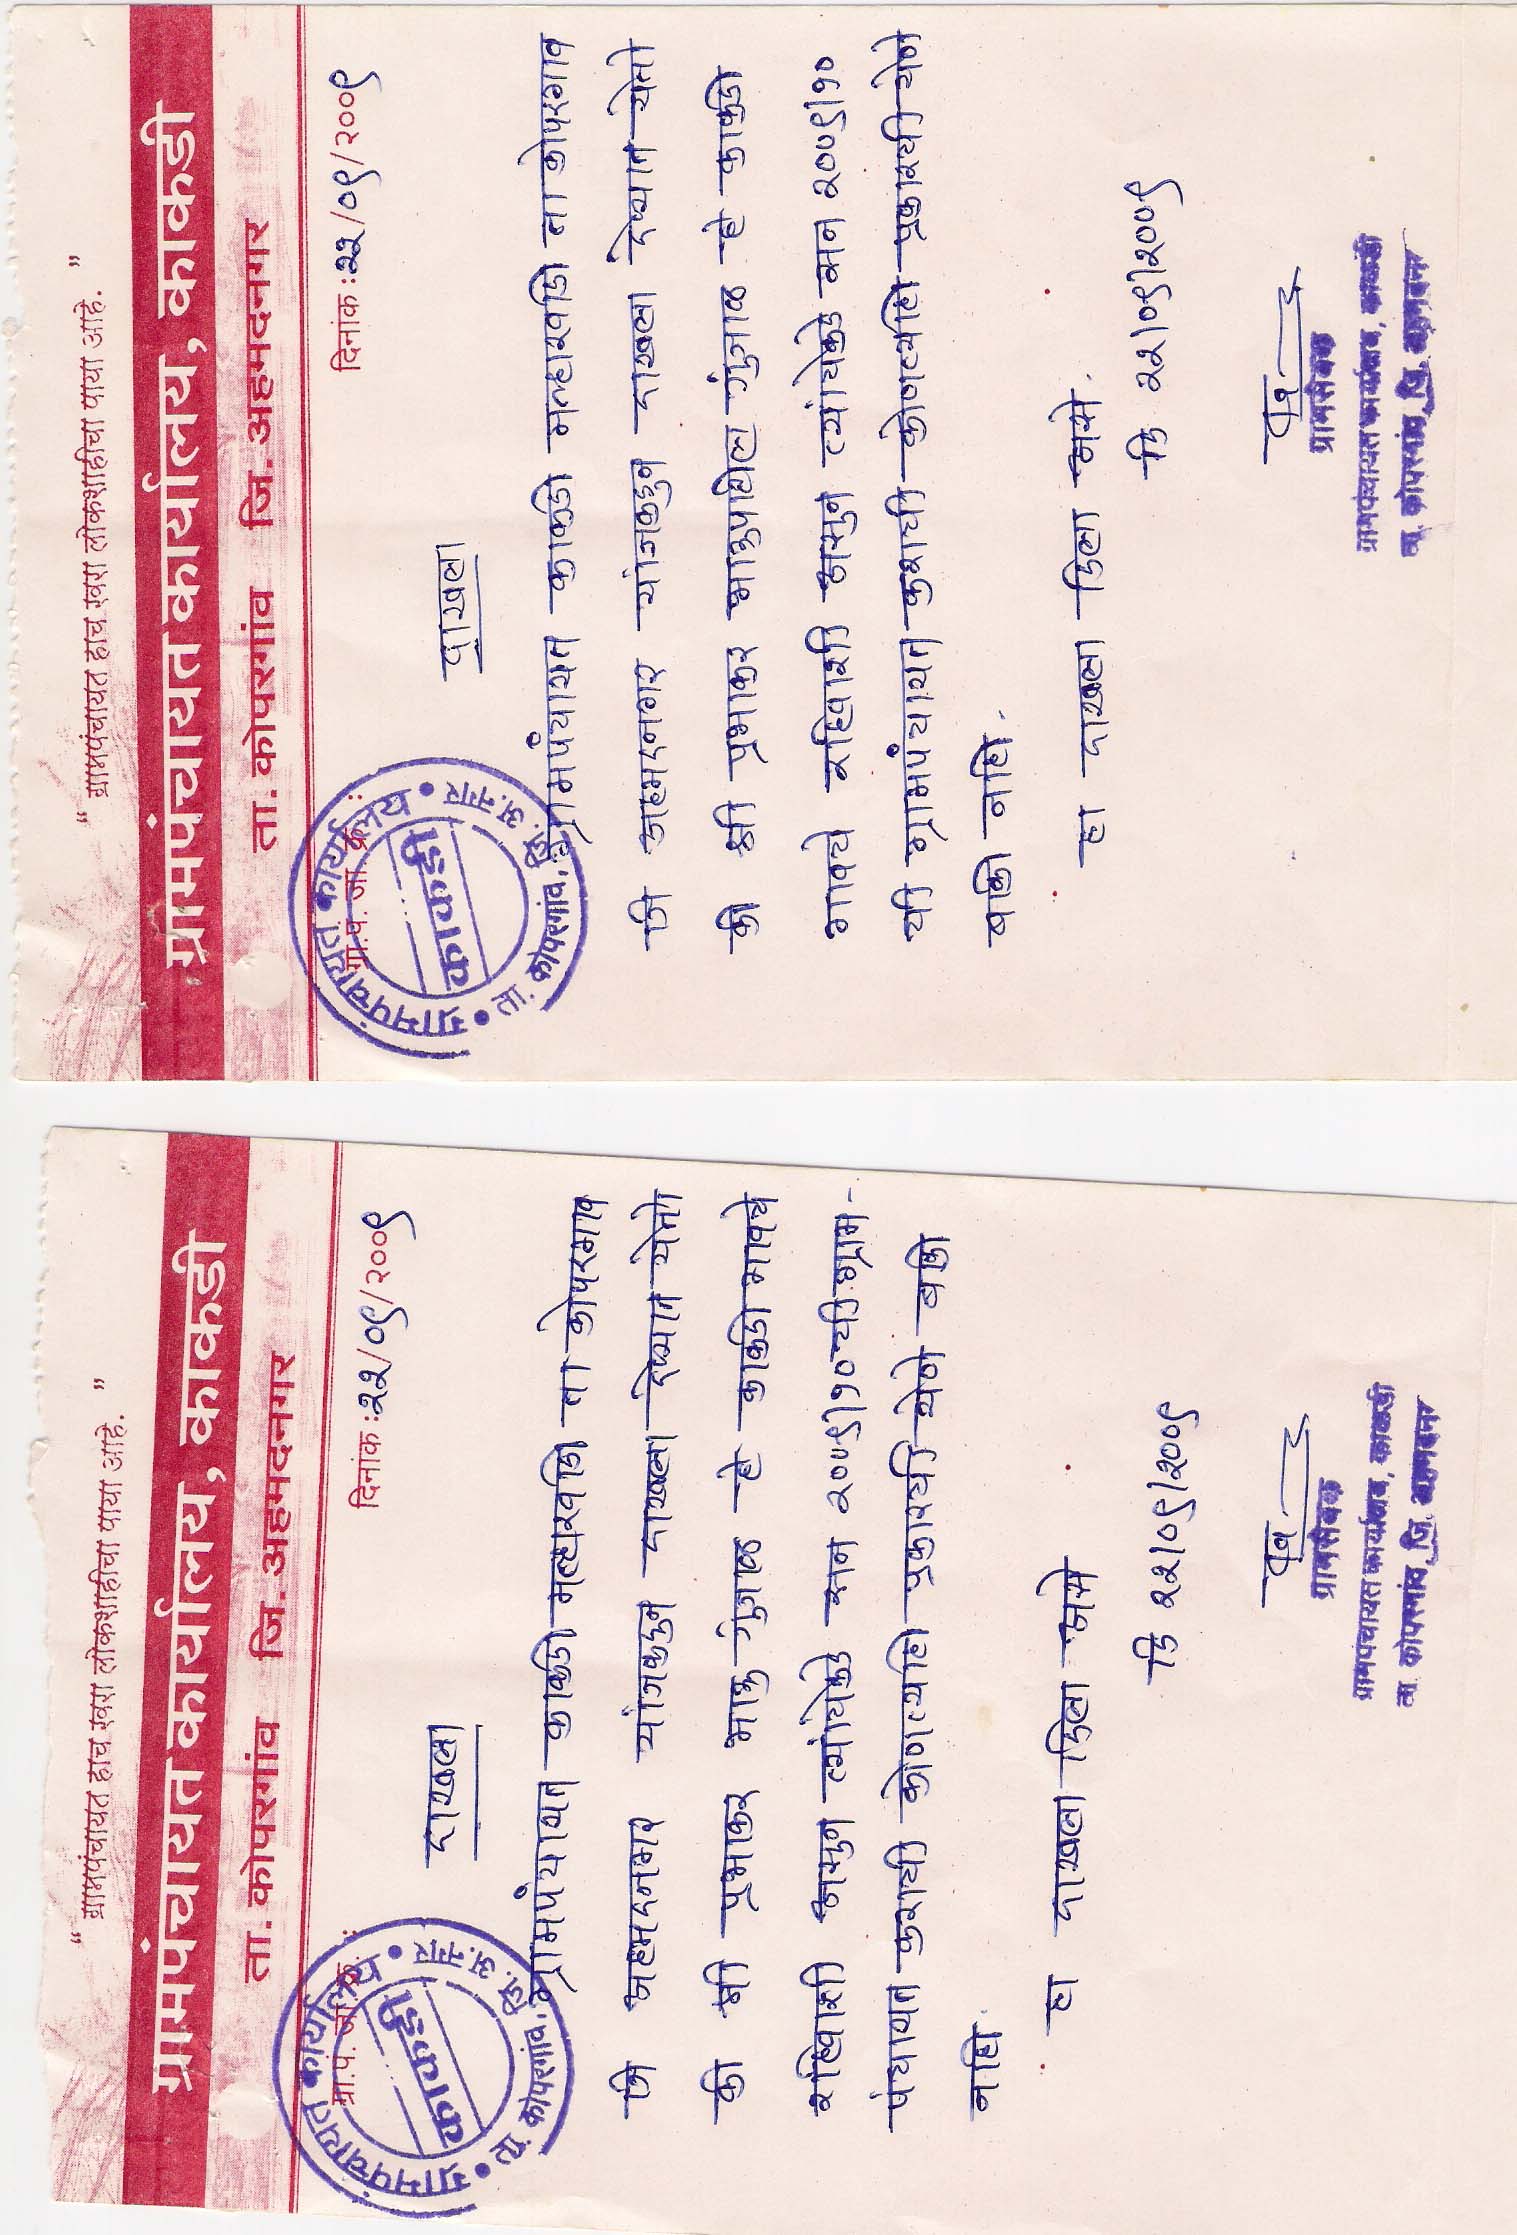 " ग्रामपंचायत हाच खरा लोकशाहीचा पाया आहे. "
ग्रामपंचायत कार्यालय, काकडी
ता. कोपरगांव जि. अहमदनगर
ग्रा.प. जा. क्र. : दिनांक : २२/०९/२००९
ग्रामपंचायत कार्यालय
काकडी
ता. कोपरगांव, जि. अ.नगर
दाखला
ग्रामपंचायत काकडी मल्हारवाडी ता कोपरगाव
जि अहमदनगर यांजकडुन दाखला देण्यात येतो
की श्री प्रभाकर भाऊ गुंजाळ हे काकडी गावचे
रहिवाशी असुन त्यांचेकडे सन २००९/१० ची ग्राम-
पंचायत कराची कोणत्याही प्रकारची येणे बाकी
नाही.
हा दाखला दिला असे
दि २२/०९/२००९
ग्रामसेवक
ग्रामपंचायत कार्यालय, काकडी
ता. कोपरगांव जि. अहमदनगर
" ग्रामपंचायत हाच खरा लोकशाहीचा पाया आहे. "
ग्रामपंचायत कार्यालय, काकडी
ता. कोपरगांव जि. अहमदनगर
ग्रा.प. जा. क्र. : दिनांक : २२/०९/२००९
ग्रामपंचायत कार्यालय
काकडी
ता. कोपरगांव, जि. अ.नगर
दाखला
ग्रामपंचायत काकडी मल्हारवाडी ता कोपरगाव
जि अहमदनगर यांजकडुन दाखला देण्यात येतो
की श्री प्रभाकर भाऊपाटील गुंजाळ हे काकडी
गावचे रहिवाशी असुन त्यांचेकडे सन २००९/१०
ची ग्रामपंचायत कराची कोणत्याही प्रकारची येणे
बाकी नाही.
हा दाखला दिला असे.
दि २२/०९/२००९
ग्रामसेवक
ग्रामपंचायत कार्यालय, काकडी
ता. कोपरगांव जि. अहमदनगर